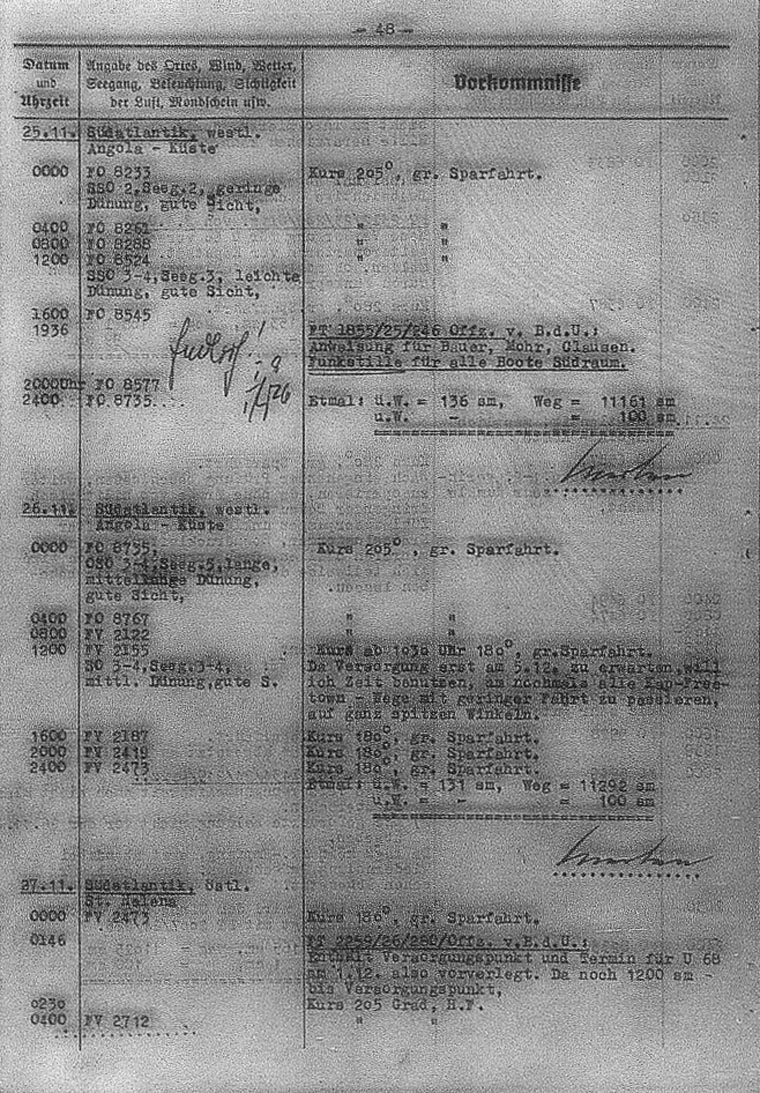 - 48 -
Datum und Uhrzeit
Angabe des Ortes, Wind, Wetter, Seegang, Beleuchtung, Sichtigkeit der Luft, Mondschein usw.
Vorkommnisse
25.11. Südatlantik, westl.
Angola - Küste
0000 FO 8233 Kurs 205°, gr. Sparfahrt.
SSO 2,Seeg.2, geringe
Dünung, gute Sicht,
0400 FO 8261 " "
0800 FO 8288 " "
1200 FO 8524 " "
SSO 3-4,Seeg.3, leichte
Dünung, gute Sicht,
1600 FO 8545
1936 FT 1855/25/246 Offz. v. B.d.U.:
Anweisung für Bauer, Mohr, Clausen.
Funkstille für alle Boote Südraum.
2000Uhr FO 8577
2400 FO 8735 Etmal: ü.W. = 136 sm, Weg = 11161 sm
u.W. - = 100 sm
26.11. Südatlantik, westl.
Angola - Küste
0000 FO 8755, Kurs 205°, gr. Sparfahrt.
OSO 3-4,Seeg.3,lange,
mittellange Dünung,
gute Sicht,
0400 FO 8767 " "
0800 FV 2122 " "
1200 FV 2155 Kurs ab 1030 Uhr 180°, gr.Sparfahrt.
SO 3-4,Seeg.3-4, Da Versorgung erst am 5.12. zu erwarten,will
mittl. Dünung,gute S. ich Zeit benutzen, um nochmals alle Kap-Free-
town - Wege mit geringer Fahrt zu passieren,
auf ganz spitzen Winkeln.
1600 FV 2187 Kurs 180°, gr. Sparfahrt.
2000 FV 2419 Kurs 180°, gr. Sparfahrt.
2400 FV 2473 Kurs 180°, gr. Sparfahrt.
Etmal: ü.W. = 131 sm, Weg = 11292 sm
u.W. = - = 100 sm
27.11. Südatlantik, östl.
St. Helena
0000 FV 2473 Kurs 180°, gr. Sparfahrt.
0146 FT 2259/26/280/Offz. v.B.d.U.:
Enthält Versorgungspunkt und Termin für U 68
am 1.12. also vorverlegt. Da noch 1200 sm -
bis Versorgungspunkt,
0230 Kurs 205 Grad, H.F.
0400 FV 2712 " "